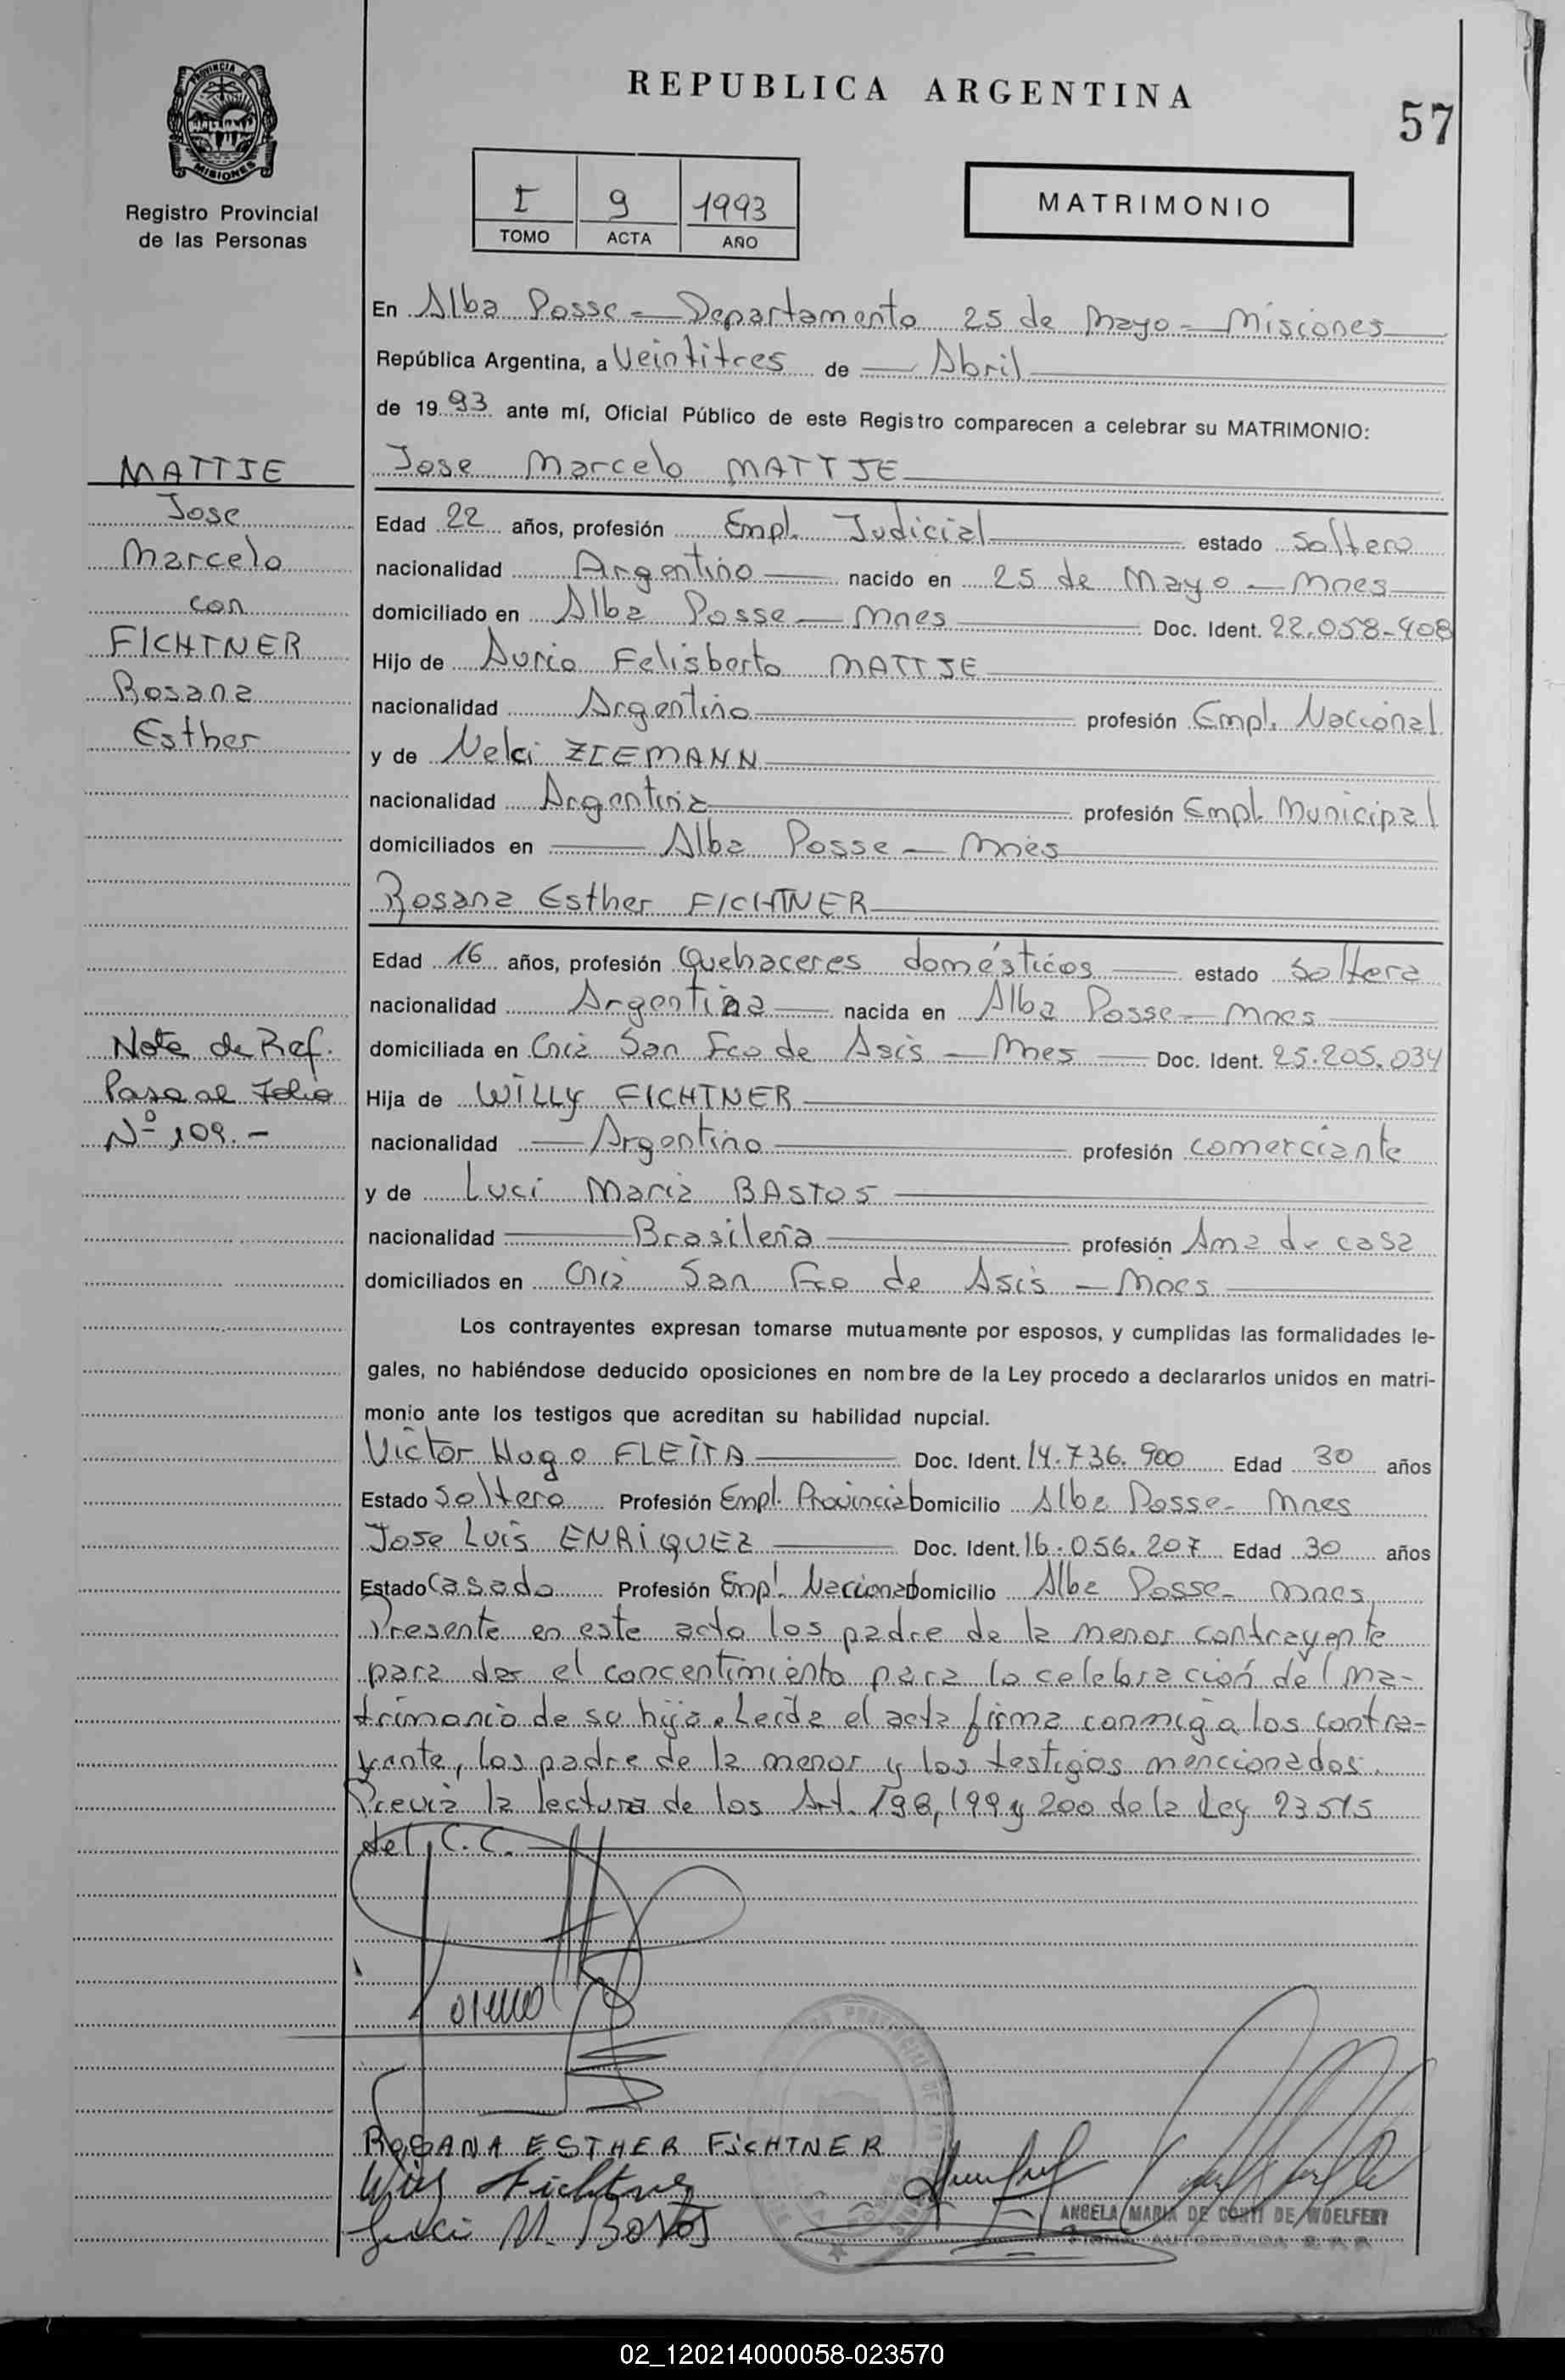 PROVINCIA DE
MISIONES
Registro Provincial
de las Personas
REPUBLICA ARGENTINA
57
I 9 1993
TOMO ACTA AÑO
MATRIMONIO
En Alba Posse = Departamento 25 de Mayo = Misiones
República Argentina, a Veintitres de Abril
de 1993 ante mí, Oficial Público de este Registro comparecen a celebrar su MATRIMONIO:
Jose Marcelo MATTJE
Edad 22 años, profesión Empl. Judicial estado Soltero
nacionalidad Argentino nacido en 25 de Mayo - Mnes
domiciliado en Alba Posse - Mnes Doc. Ident. 22.058-408
Hijo de Aurio Felisberto MATTJE
nacionalidad Argentino profesión Empl. Nacional
y de Nelci ZIEMANN
nacionalidad Argentina profesión Empl. Municipal
domiciliados en Alba Posse - Mnes
Rosana Esther FICHTNER
Edad 16 años, profesión Quehaceres domésticos estado Soltera
nacionalidad Argentina nacida en Alba Posse - Mnes
domiciliada en Cnia San Fco de Asis - Mnes Doc. Ident. 25.205.034
Hija de WILLY FICHTNER
nacionalidad Argentino profesión comerciante
y de Luci Maria BASTOS
nacionalidad Brasileña profesión Ama de casa
domiciliados en Cnia San Fco de Asis - Mnes
Los contrayentes expresan tomarse mutuamente por esposos, y cumplidas las formalidades le-
gales, no habiéndose deducido oposiciones en nombre de la Ley procedo a declararlos unidos en matri-
monio ante los testigos que acreditan su habilidad nupcial.
Victor Hugo FLEITA Doc. Ident. 14.736.900 Edad 30 años
Estado Soltero Profesión Empl. Provincial Domicilio Alba Posse - Mnes
Jose Luis ENRIQUEZ Doc. Ident. 16.056.207 Edad 30 años
Estado Casado Profesión Empl. Nacional Domicilio Alba Posse - Mnes
Presente en este acto los padre de la menor contrayente
para dar el concentimiento para la celebración del Ma-
trimonio de su hija. Leida el acta firma conmigo los contra-
yente, los padre de la menor y los testigos mencionados.
Previa la lectura de los Art. 198, 199 y 200 de la Ley 23515
del C.C.
MATTJE
Jose
Marcelo
con
FICHTNER
Rosana
Esther
Nota de Ref.
Pasa al Folio
Nº 109.-
ROSANA ESTHER FICHTNER
Willy Fichtner
Luci M. Bastos
ANGELA MARIA DE CONTI DE WOELFERT
FIRMA AUTORIZADA
02_120214000058-023570